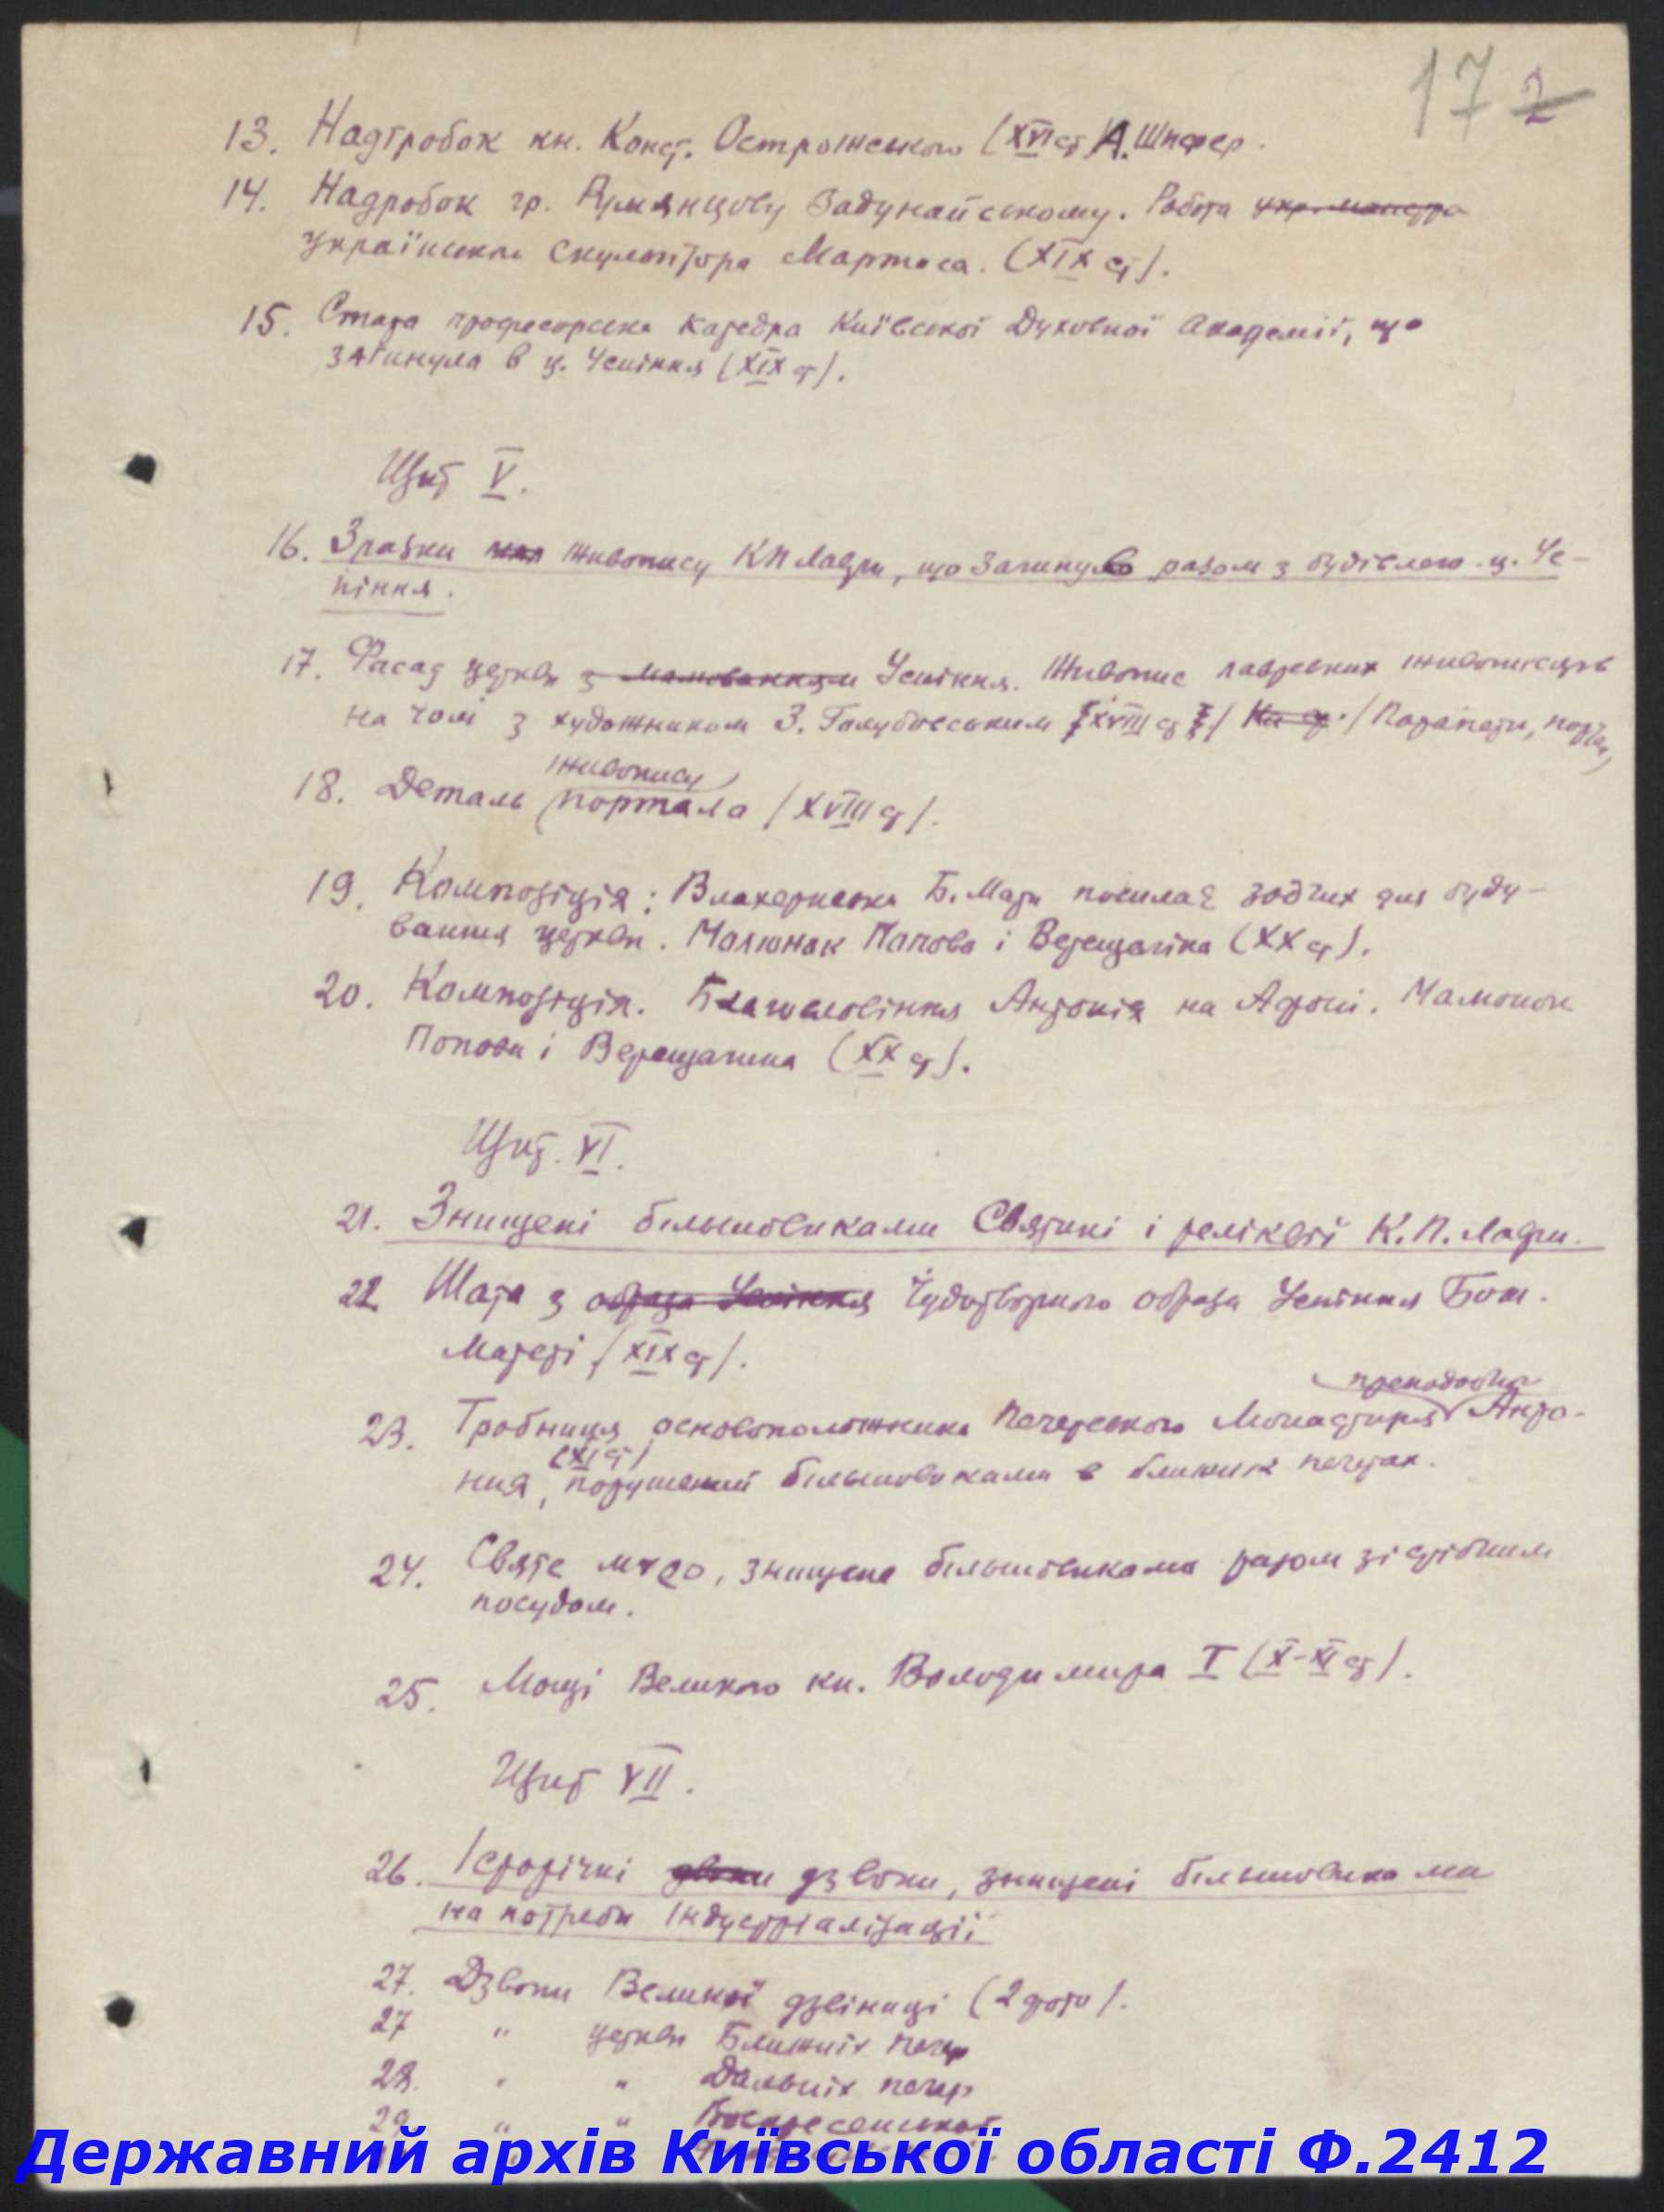 17 2
13. Надгробок кн. Конст. Острожського (XVI ст) А. Шпфер.
14. Надробок гр. Румянцову Задунайському. Робота укр. майстра
українськ. скульптора Мартоса. (XIX ст).
15. Стара професорська катедра Київської Духовної Академії, що
загинула в ц. Успіння (XIX ст).
Щит V.
16. Зразки живопису КП Лаври, що загинуло разом з будівлею ц. Ус-
піння.
17. Фасад церкви з малюванням Успіння. Живопис лаврських живописців
на чолі з художником З. Голубовським /XVIII ст/ /Парапети, портал/
живопису
18. Деталь портала /XVIII ст/.
19. Композіція: Влахернська Б. Мати посилає зодчих для буду-
вання церкви. Малюнок Попова і Верещагіна (XX ст).
20. Композіція. Благословіння Антонія на Афоні. Малюнок
Попова і Верещагина (XX ст).
Щит. VI.
21. Знищені більшовиками Святині і реліквії К.П. Лаври.
22 Шата з образа Успіння Чудотворного образа Успіння Бож.
Матері /XIX ст/.
преподобн
23. Гробниця основоположника Печерського Монастиря Анто-
(XI ст)
ния, порушений більшовиками в ближніх печерах.
24. Святе миро, знищене більшовиками разом зі срібним
посудом.
25. Мощі Великого кн. Володимира I (X-XI ст).
Щит VII.
26. Історічні дзвони дзвони, знищені більшовиками
на потреби індустріалізації
27. Дзвони Великої дзвіниці (2 фото).
27 " церкви Ближніх печер
28. " " Дальніх печер
29 " " Воскресенської
Державний архів Київської області Ф.2412